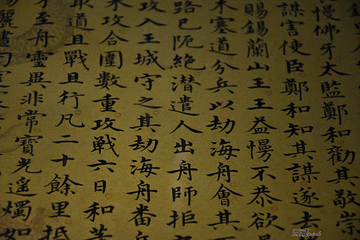 慢佛牙太監鄭和勸其敬崇
謀害使臣鄭和知其謀遂去
賜錫蘭山王王益慢不恭欲
木塞道分兵以劫海舟會其
路已阨絶潛遣人出舟師拒
攻入王城守之其劫海舟番
木攻合圍數重攻戰六日和
取道且戰且行凡二十餘里抵
牙至舟靈異非常寶光遙燭如